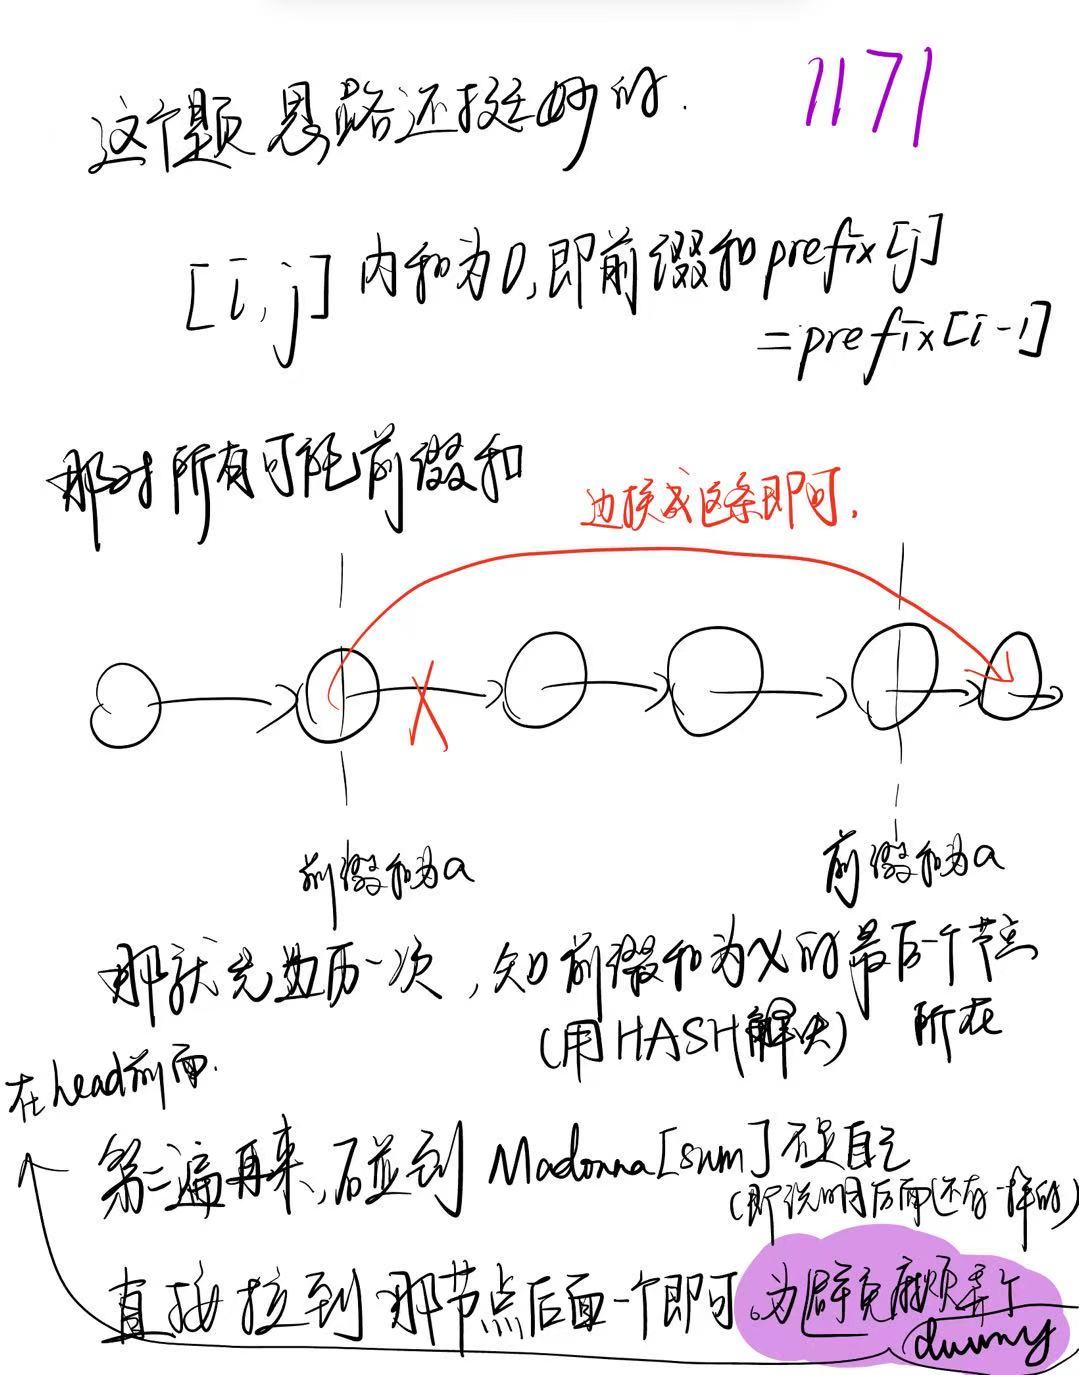 这个题思路还挺妙的. 1171
[i,j]内和为0,即前缀和prefix[j]
=prefix[i-1]
那对所有可能前缀和
边换成这条即可.
前缀和为a 前缀和为a
那就先遍历一次,知前缀和为x的最后一个节点
(用HASH解决) 所在
在head前面.
第二遍再来,碰到Madonna[sum]不是自己
(即说明后面还有一样的)
直接拉到那节点后面一个即可。为避免麻烦弄个
dummy